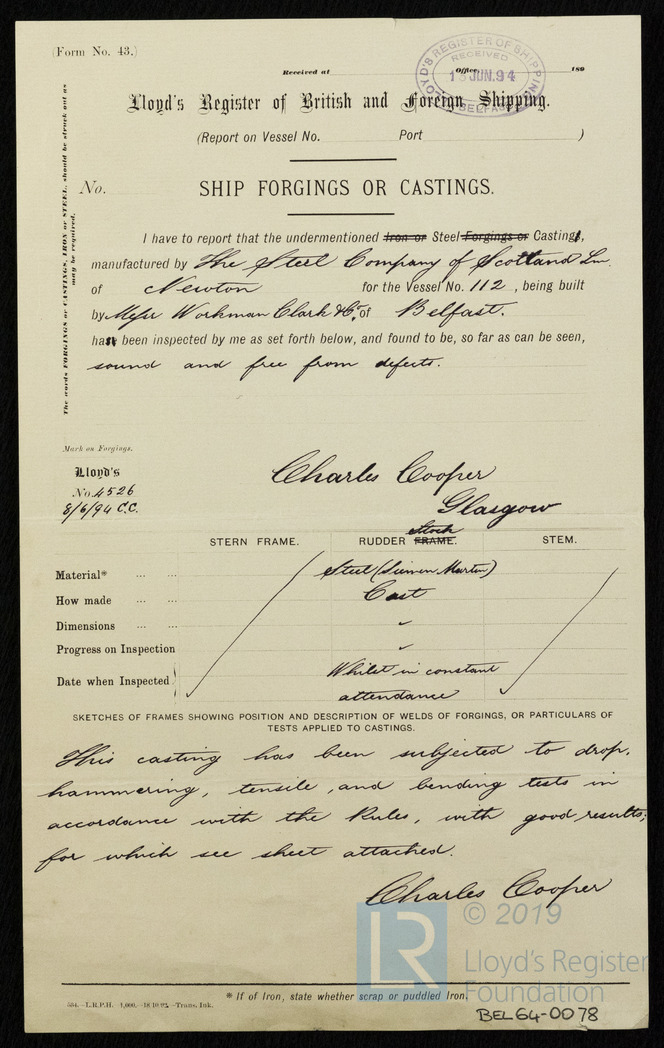 (Form No. 43.)
Received at Office, 189
LLOYD'S REGISTER OF SHIPPING
RECEIVED
JUN.94
BELFAST
Lloyd's Register of British and Foreign Shipping.
(Report on Vessel No. Port )
The words FORGINGS or CASTINGS, IRON or STEEL, should be struck out as
may be required.
No. SHIP FORGINGS OR CASTINGS.
I have to report that the undermentioned Iron or Steel Forgings or Casting,
manufactured by The Steel Company of Scotland Lm.
of Newton for the Vessel No. 112, being built
by Messrs Workman Clark & Co. of Belfast.
has been inspected by me as set forth below, and found to be, so far as can be seen,
sound and free from defects.
Mark on Forgings.
Lloyd's
No. 4526
8/6/94 C.C.
Charles Cooper
Glasgow
STERN FRAME. RUDDER FRAME. Stock STEM.
Material* ... ... Steel (Siemen Martin)
How made ... ... Cast
Dimensions ... ...
Progress on Inspection
Date when Inspected Whilst in constant
attendance
SKETCHES OF FRAMES SHOWING POSITION AND DESCRIPTION OF WELDS OF FORGINGS, OR PARTICULARS OF
TESTS APPLIED TO CASTINGS.
This casting has been subjected to drop,
hammering, tensile, and bending tests in
accordance with the Rules, with good results;
for which see sheet attached.
Charles Cooper
LR © 2019
Lloyd's Register
Foundation
* If of Iron, state whether scrap or puddled Iron.
L.R.P.H. 1,000. Trans. Ink.
BEL64-0078